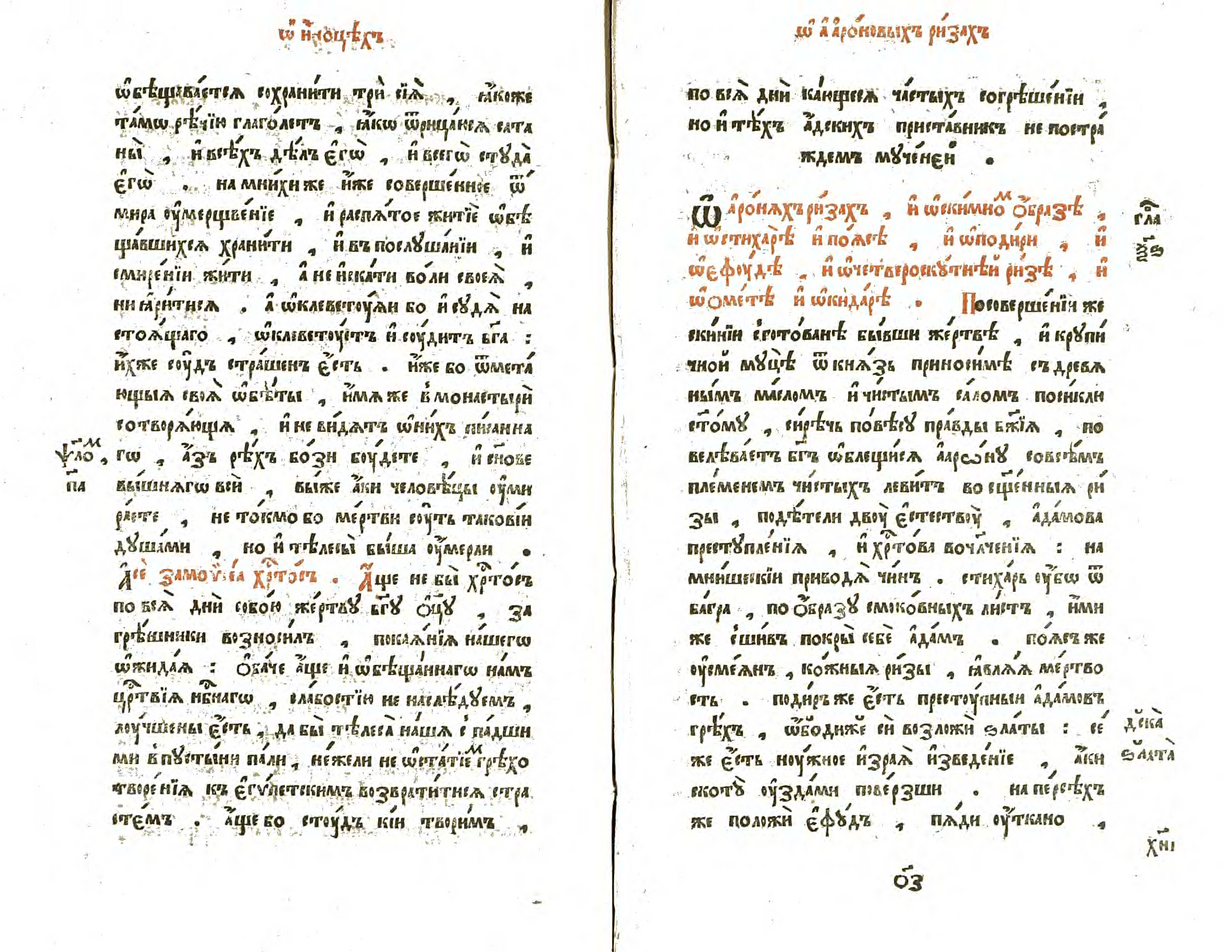 ѡ҆ и҆нѡцѣхъ
ѡ҆бѣщава́етсѧ сохрани́ти трѝ сїѧ̀ , ꙗ҆́коже
та́мѡ рѣ́чїю глаго́летъ , ꙗ҆́кѡ ѿрица́юсѧ сата
ны̀ , и҆ всѣ́хъ дѣ́лъ є҆гѡ̀ , и҆ всегѡ̀ стꙋда̀
є҆гѡ̀ . на мни́хи же и҆̀же соверше́нное ѿ
мира ᲂу҆мерщве́нїе , и҆ распѧ́тое житїѐ ѡ҆бѣ
ща́вшихсѧ храни́ти , и҆ въ послꙋша́нїи , и҆
смире́нїи жи́ти , а҆ не и҆ска́ти во́ли своеѧ̀ ,
ни ꙗ҆ри́тисѧ . а҆ ѡ҆клевето́уѧи бо и҆ сꙋдѧ̀ на
стоѧ́щаго , ѡ҆клевето́уетъ и҆ со́удитъ бг҃а :
и҆́хже со́удъ стра́шенъ є҆́сть . и҆́же бо ѿмета́
ющыѧ своѧ̀ ѡ҆бѣ́ты , и҆́мѧ же в монастырѝ
сотворѧ́ющїѧ , и҆ не ви́дѧтъ ѡ҆ ни́хъ пи́санна
гѡ , а҆́зъ рѣ́хъ бо́зи бо́удете , и҆ сн҃ове
вы́шнѧгѡ всѝ , вы́ же а҆́ки человѣ́цы ᲂу҆ми
ра́ете , не то́кмо бо ме́ртви со́уть такові́и
дꙋша́ми , но и҆ тѣлесы̀ бы́ша ᲂу҆́мерли .
А҆ сѐ замоѵсе́а хрⷭ҇то́съ . А҆́ще не бы̀ хрⷭ҇то́съ
по всѧ̀ днѝ собо́ю же́ртвꙋ бг҃ꙋ ѻ҆ц҃ꙋ , за
грѣ́шники возноси́лъ , покаѧ́нїѧ на́шегѡ
ѡ҆жида́ѧ : ѻ҆ба́че а҆́ще и҆ ѡ҆бѣща́ннагѡ на́мъ
црⷭ҇твїѧ нбⷭ҇нагѡ , сла́бостїю не наслѣ́дꙋемъ ,
ло́учшены є҆́сть , да бы̀ тѣлеса̀ на́шѧ с па́дши
ми в пꙋсты́ни па́ли , не́жели не ѡ҆ста́тїемъ грѣхо
творе́нїѧ къ є҆гѵ́петскимъ возврати́тисѧ стра
сте́мъ . а҆́ще бо сто́удъ кі́и твори́мъ ,
ѱало́м ,
п҃а
ѡ҆ а҆аро́новыхъ ри́захъ
по всѧ̀ днѝ ка́ющесѧ ча́стыхъ согрѣше́нїи ,
но и҆ тѣ́хъ а҆́дскихъ приста́вникъ не постра́
ждемъ мꙋче́нєи .
Ѿ а҆ро́нѧхъ ри́захъ , и҆ ѡ҆ скимно́м ѻ҆́бразѣ ,
и҆ ѡ҆ стиха́рѣ и҆ по́ѧсѣ , и҆ ѡ҆ поди́ри , и҆
ѡ҆ є҆фо́удѣ , и҆ ѡ҆ четвероскꙋ́тнѣй ри́зѣ , и҆
ѡ҆ ѻ҆ме́тѣ и҆ ѡ҆ кида́рѣ . По соверше́нїи же
ски́нїи сгото́ванѣ бы́вши же́ртвѣ , и҆ крꙋпи́
чной мꙋцѣ̀ ѿ кнѧ́зь приноси́мѣ съ древѧ́
ны́мъ ма́сломъ и҆ чи́стымъ са́ломъ по си́кли
ст҃о́мꙋ , си́рѣчь по вѣ́сꙋ пра́вды бж҃їѧ , по
велѣва́етъ бг҃ъ ѡ҆блещи́сѧ а҆арѡ́нꙋ со всѣ́мъ
пле́менемъ чи́стыхъ леви́тъ во сщ҃е́нныѧ ри́
зы , под̾ѣ́тели двоꙋ̀ є҆стествоꙋ̀ , а҆да́мова
престꙋпле́нїѧ , и҆ хрⷭ҇то́ва вочл҃че́нїѧ : на
мни́шескїи приводѧ̀ чи́нъ . стиха́рь ᲂу҆́бѡ ѿ
ба́гра , по ѻ҆́бразꙋ смоко́вныхъ ли́стъ , и҆́ми
же сши́въ покры̀ себѐ а҆да́мъ . по́ѧсъ же
ᲂу҆смѧ́нъ , ко́жныѧ ри́зы , ꙗ҆влѧ́ѧ ме́ртво
сть . поди́ръ же є҆́сть престо́упныи а҆да́мовъ
грѣ́хъ , ѡ҆́бодиѐ же сѝ возложѝ ѕла́ты : се́
же є҆́сть но́ужное и҆зра́ѧ и҆зведе́нїе , а҆́ки
скотꙋ̀ ᲂу҆зда́ми пове́рзши . на пе́рсѣхъ
же положѝ є҆фꙋ́дъ , пѧ́ди ᲂу҆́ткано ,
гла
дс҃ка̀
ѕла́та̀
хн҃і
ѻ҃з